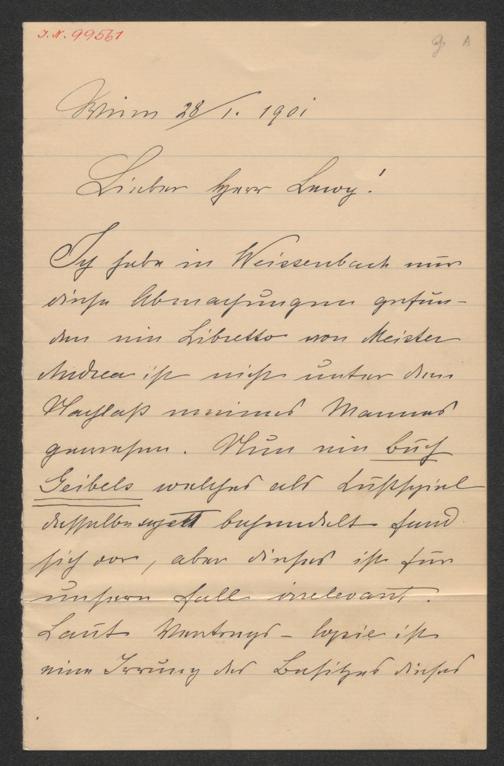 I. N. 99561
Wien 28/1. 1901
Lieber Herr Lewy!
Ich habe in Weissenbach nur
diese Abmachungen gefun-
den ein Libretto von Meister
Andrea ist nicht unter dem
Nachlaß meines Mannes
gewesen. Nur ein Buch
Geibels welches als Lustspiel
dasselbe behandelt fand
sich vor, aber dieses ist für
unsern Fall irrelevant.
Laut Vertrags-Copie ist
eine Irrung des Besitzes dieses